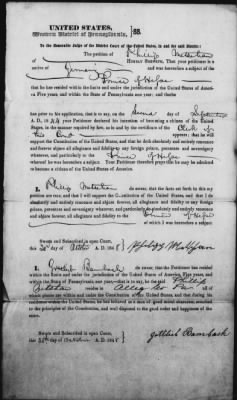 UNITED STATES,
Western District of Pennsylvania, SS.
To the Honorable Judge of the District Court of the United States, in and for said District:
The petition of Philip
HUMBLY SHEWETH, That your petitioner is a
native of Germany and was heretofore a subject of the
Prince of Hesse
that he has resided within the limits and under the jurisdiction of the United States of
America Five years, and within the State of Pennsylvania one year; and that he
has prior to his application, that is to say, on the day of
A. D. your Petitioner declared his intention of becoming a citizen of the United
States, in the manner required by law, as is and by the certificate of the Clerk of
this Court that he will
support the Constitution of the United States, and that he doth absolutely and entirely renounce
and forever abjure all allegiance and fidelity to any foreign prince, potentate and sovereignty
whatever, and particularly to the Prince of Hesse of
whom he was heretofore a subject Your Petitioner therefore prays that he may be admitted
to become a Citizen of the United States.
I, Philip do swear, that the facts set forth in this my
petition are true, and that I will support the Constitution of the United States, and that I do
absolutely and entirely renounce and abjure forever, all allegiance and fidelity to any foreign
prince, potentate and sovereignty whatever, and particularly do absolutely and entirely renounce
and abjure forever, all fidelity to the Prince of Hesse
of which I was heretofore a subject.
Sworn and Subscribed in open Court,
this day of A. D. 184
I, Gottlieb Bambach do swear, that the Petitioner has resided
within the limits and under the Jurisdiction of the United States, Five years, and
within the State of Pennsylvania one year,—that is to say, he the said Philip
resides in Allegheny Pa all of
which places are within and under the Constitution of the United States, and that during his
residence within the United States, he has behaved as a man of good moral character, attached
to the principles of the Constitution, and well disposed to the good order and happiness of the
same.
Sworn and Subscribed in open Court,
this day of A. D. 184
Gottlieb Bambach